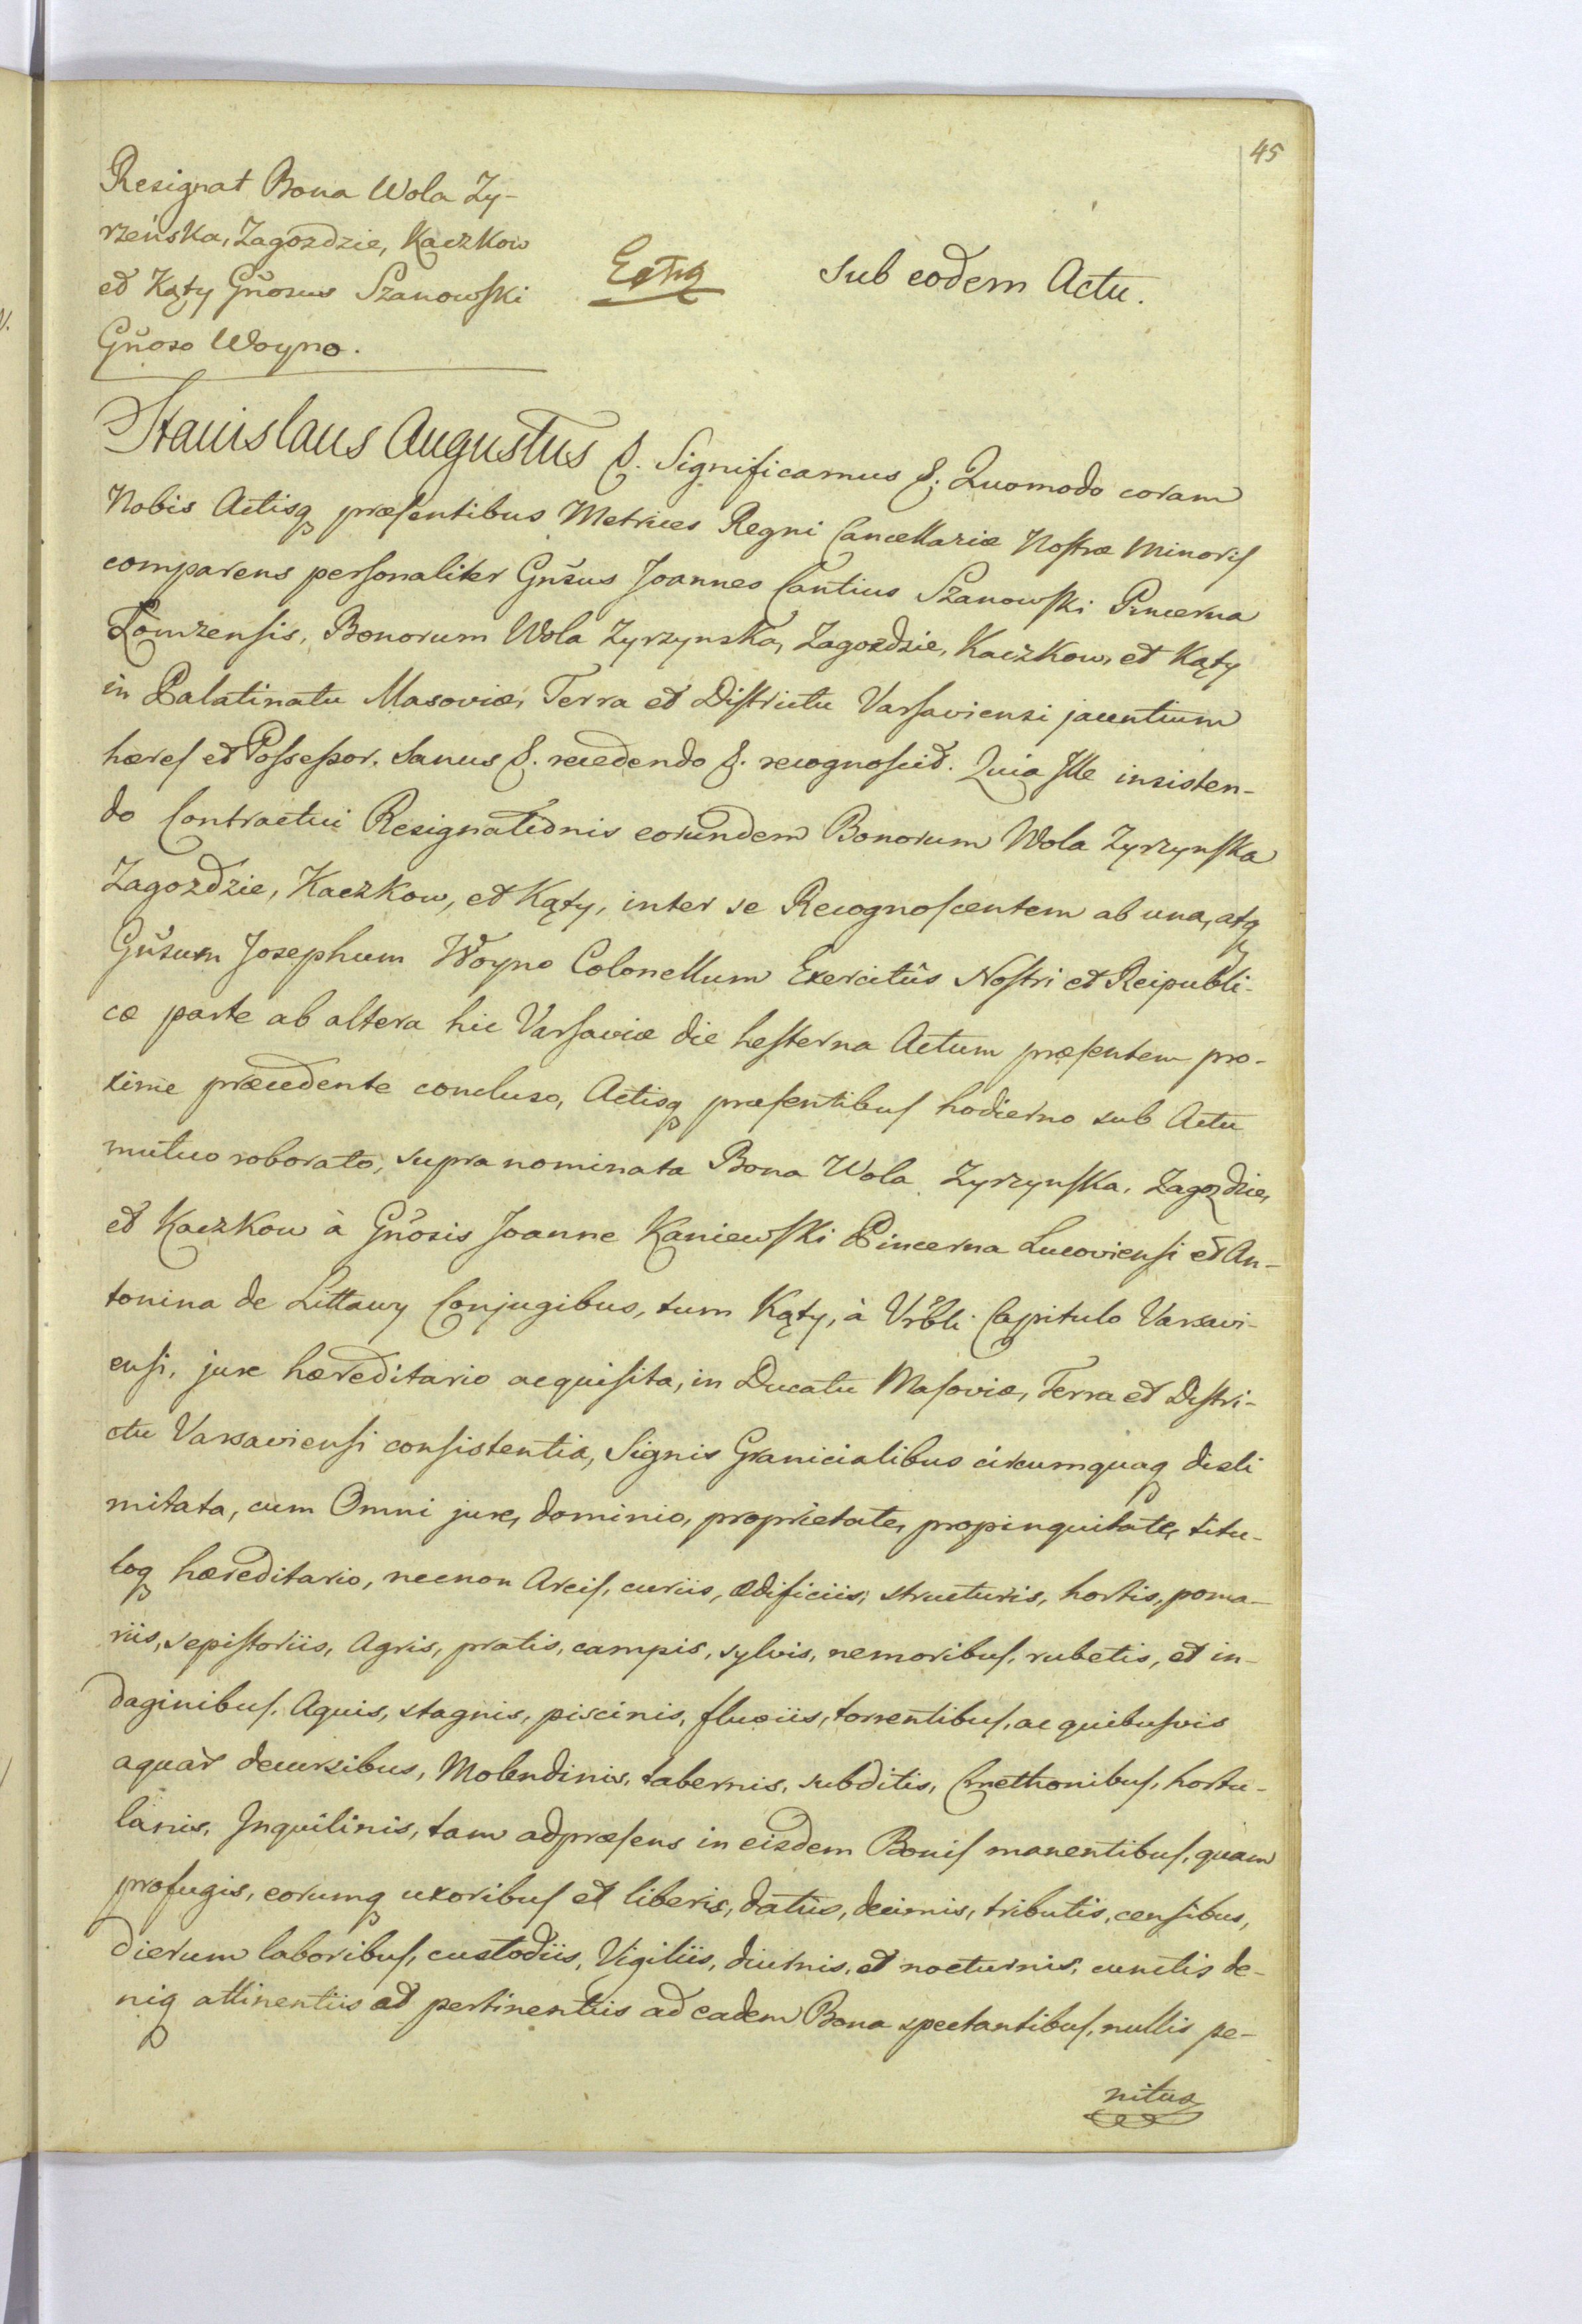 45
Resignat Bona Wola Zy-
rzeńska, Zagozdzie, Kaczkow
et Kąty Gn̄osus Szanowski
Gn̄oso Woyno.
Sub eodem Actu.
Stanislaus Augustus &. Significamus &. Quomodo coram
Nobis Actisq præsentibus Metrices Regni Cancellariæ Nostræ Minoris
comparens personaliter Gn̄sus Joannes Cantius Szanowski Pincerna
Łomzensis, Bonorum Wola Zyrzynska, Zagozdzie, Kaczkow, et Kąty
in Palatinatu Masoviæ, Terra et Districtu Varsaviensi jacentium
hæres et Possessor. Sanus &. recedendo &. recognoscit. Quia Ille insisten-
do Contractui Resignationis eorundem Bonorum Wola Zyrzynska
Zagozdzie, Kaczkow, et Kąty, inter se Recognoscentem ab una, atq
Gn̄sum Josephum Woyno Colonellum Exercitûs Nostri et Reipubli-
cæ parte ab altera hic Varsaviæ die hesterna Actum præsentem pro-
xime præcedente concluso, Actisq præsentibus hodierno sub Actu
mutuo roborato, supra nominata Bona Wola Zyrzynska, Zagozdzie,
et Kaczkow à Gn̄osis Joanne Kaniewski Pincerna Lucoviensi et An-
tonina de Littawy Conjugibus, tum Kąty, à Vrbli Capitulo Varsavi-
ensi, jure hæreditario acquisita, in Ducatu Masoviæ, Terra et Distri-
ctu Varsaviensi consistentia, Signis Granicialibus circumquaq disli
mitata, cum Omni jure, dominio, proprietate, propinquitate, titu-
loq hæreditario, necnon Arcis, curiis, ædificiis, structuris, hortis, poma-
riis, sepistoriis, Agris, pratis, campis, sylvis, nemoribus, rubetis, et in-
daginibus, Aquis, stagnis, piscinis, fluviis, torrentibus, ac quibusvis
aquar̄ decursibus, Molendinis, tabernis, subditis, Cmethonibus, hortu-
lanis, Inquilinis, tam adpræsens in eisdem Bonis manentibus, quam
profugis, eorumq uxoribus et liberis, datiis, decimis, tributis, censibus,
dierum laboribus, custodiis, Vigiliis, diurnis, et nocturnis, cunctis de-
niq attinentiis et pertinentiis ad eadem Bona spectantibus, nullis pe-
nitus